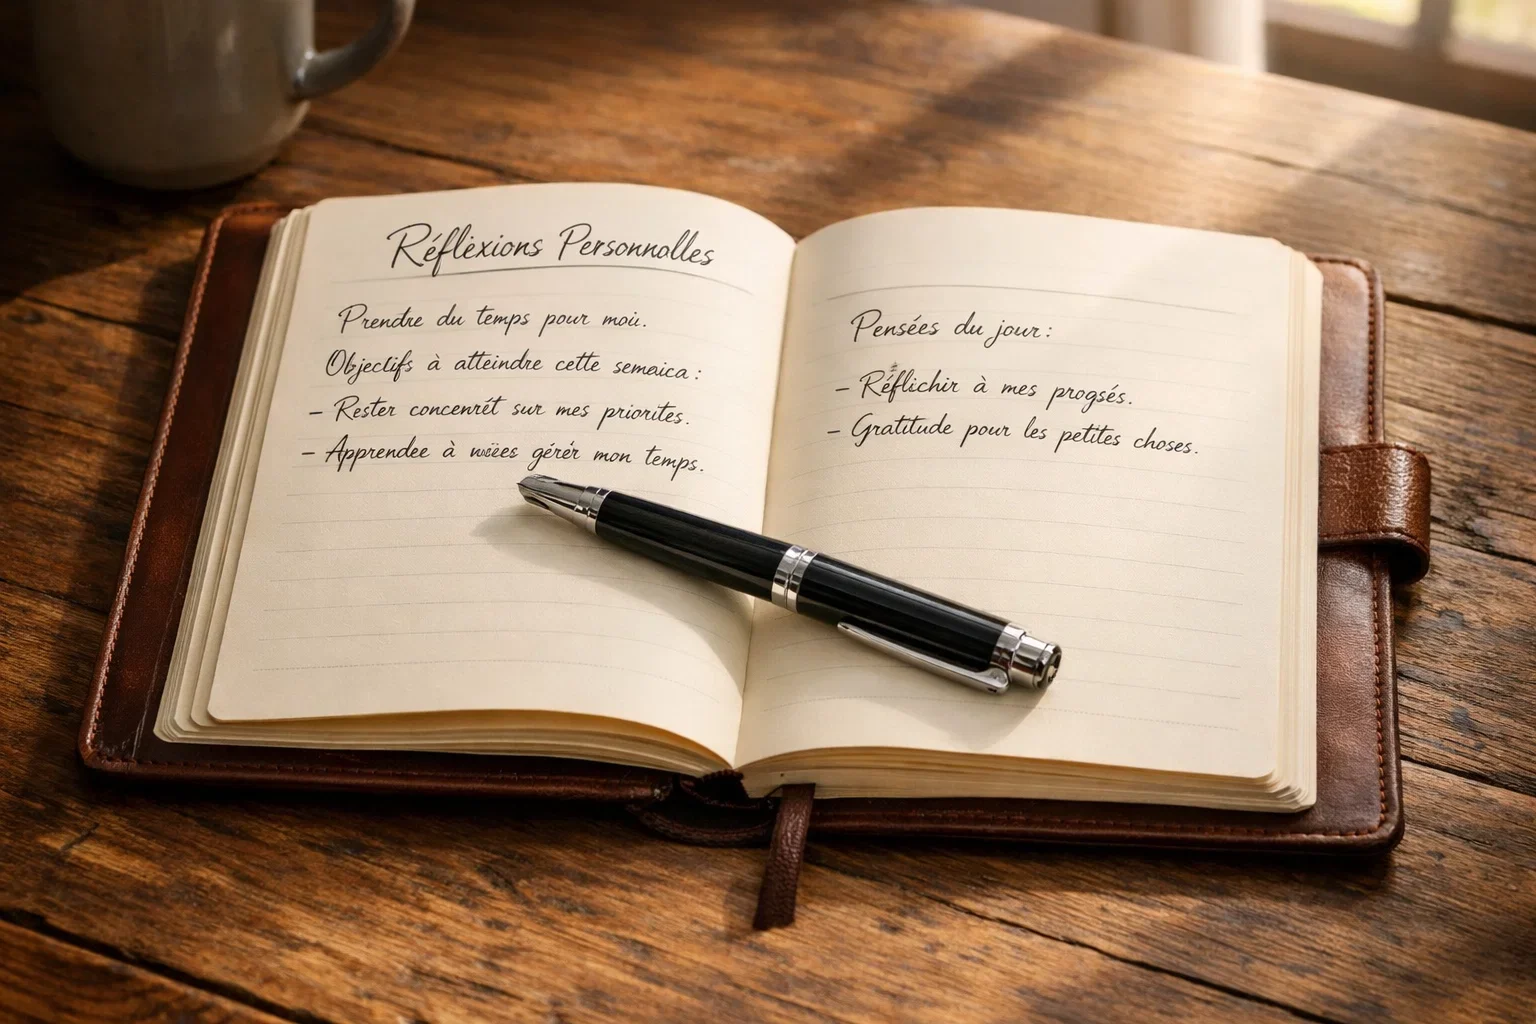 Réflexions Personnolles
Prendre du temps pour moi.
Objectifs à atteindre cette semaica :
- Rester concenrét sur mes priorites.
- Apprendee à gérér mon temps.
Pensées du jour :
- Réflichir à mes progsés.
- Gratitude pour les petites choses.